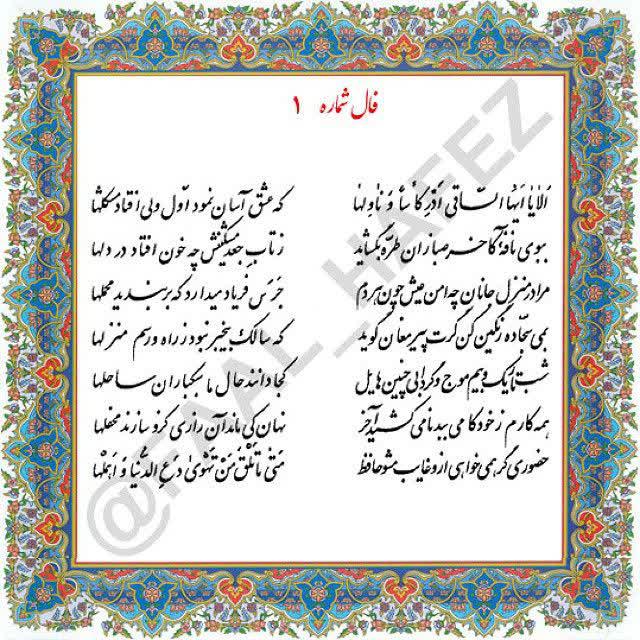 فال شماره ۱
اَلا یا اَیُّهَا السّاقی اَدِرْ کَأساً وَ ناوِلها که عشق آسان نمود اوّل ولی افتاد مشکلها
ببوی نافهٔ کاخر صبا زان طرّه بگشاید ز تاب جعد مشکینش چه خون افتاد در دلها
مرا در منزل جانان چه امن عیش چون هر دم جرس فریاد میدارد که بربندید محملها
بمی سجّاده رنگین کن گرت پیر مغان گوید که سالک بیخبر نبود ز راه و رسم منزلها
شب تاریک و بیم موج و گردابی چنین هایل کجا دانند حال ما سبکباران ساحلها
همه کارم ز خودکامی ببدنامی کشید آخر نهان کی ماند آن رازی کزو سازند محفلها
حضوری گر همی خواهی ازو غایب مشو حافظ مَتی ما تَلْقَ مَنْ تَهْوی دَعِ الدُّنْیا وَ اَهْمِلْها
@FAAL_HAFEZ